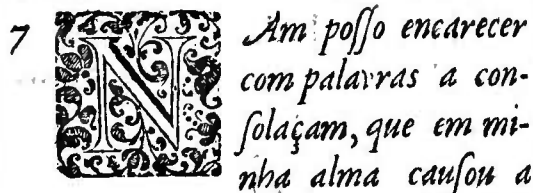 7 NAm posso encarecer
com palavras a con-
solaçam, que em mi-
nha alma causou a